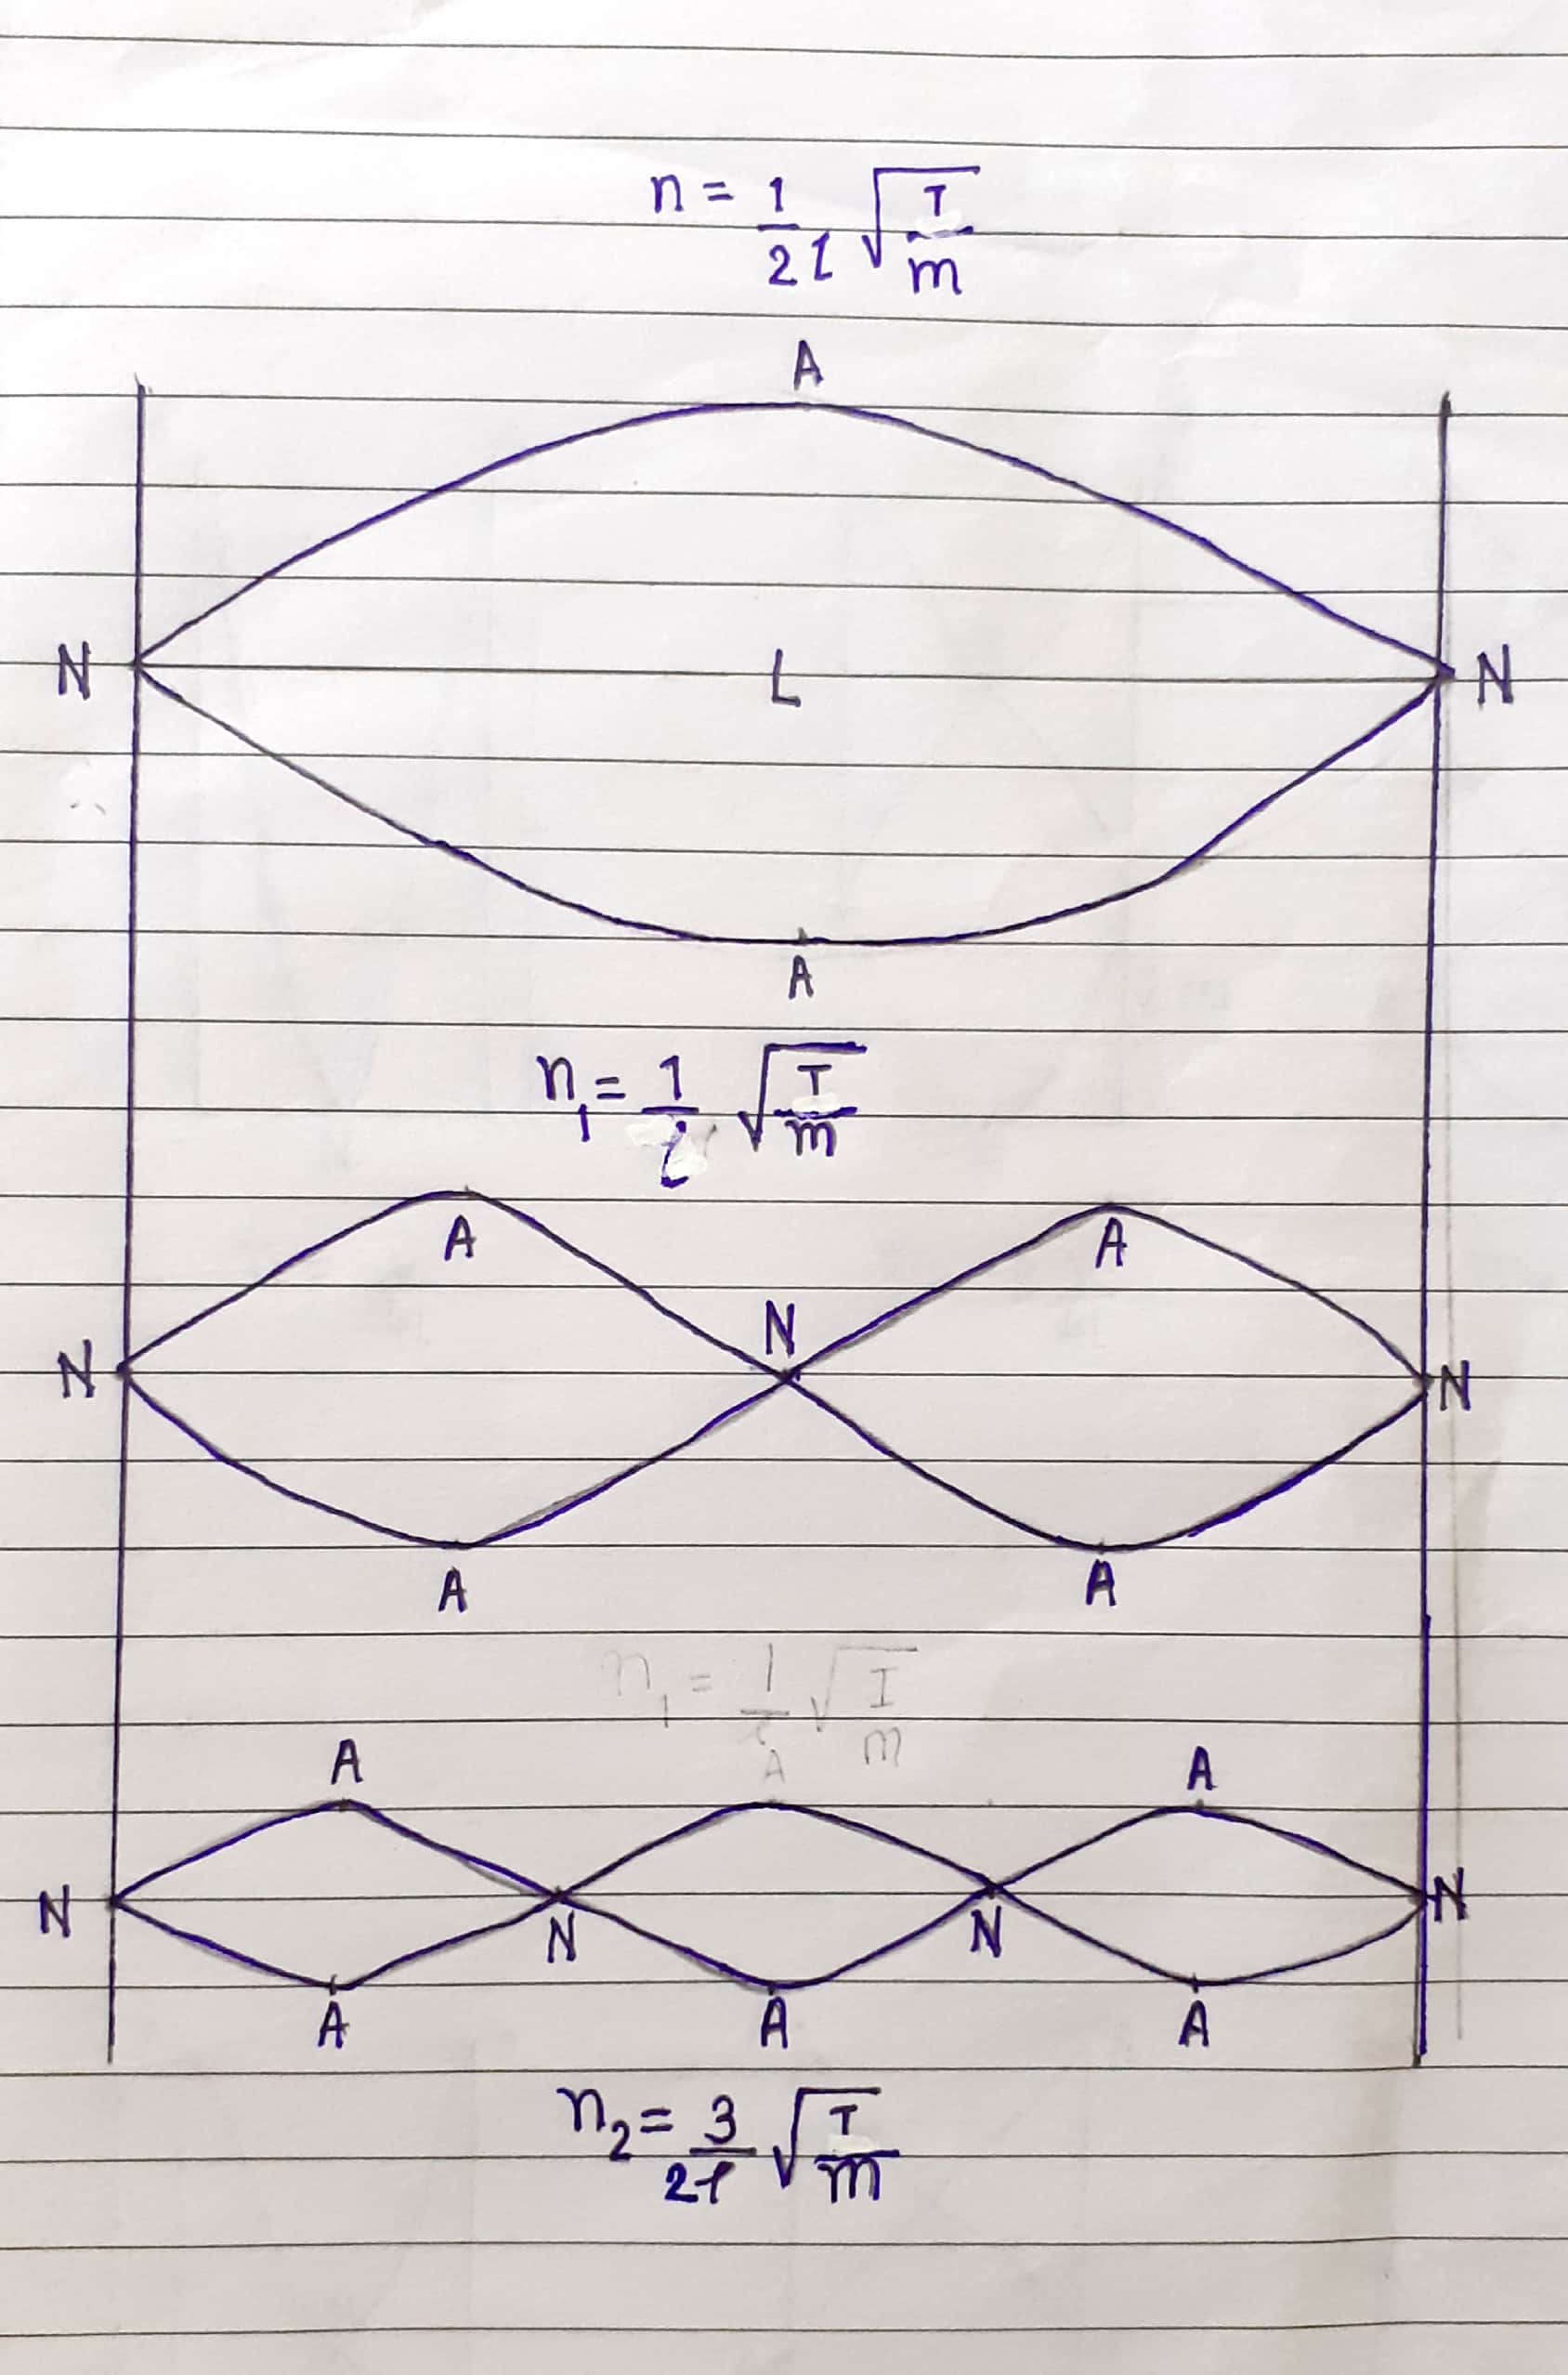 n = 1/2l √T/m
A
N L N
A
n₁ = 1/l √T/m
A A
N N N
A A
n₁ = 1/l √T/m
A A A
N N N N
A A A
n₂ = 3/2l √T/m